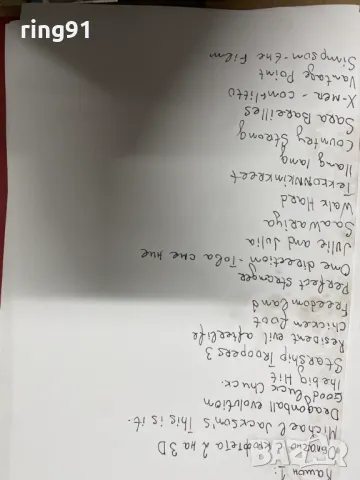 ring91
Кашон 1:
Облачно с кюфтета 2 на 3D
Michael Jackson's This is it.
Dragonball evolution
Good luck Chuck.
The big Hit
Starship Troopers 3
Resident evil afterlife
Chicken foot
Freedom land
Perfect stranger
One direction - Това сме ние
Julie and Julia
Sawariya
Walk Hard
lang
Country Strong
Sara Bareilles
X-men - conflitto
Vantage Point
Simpsom - the Film